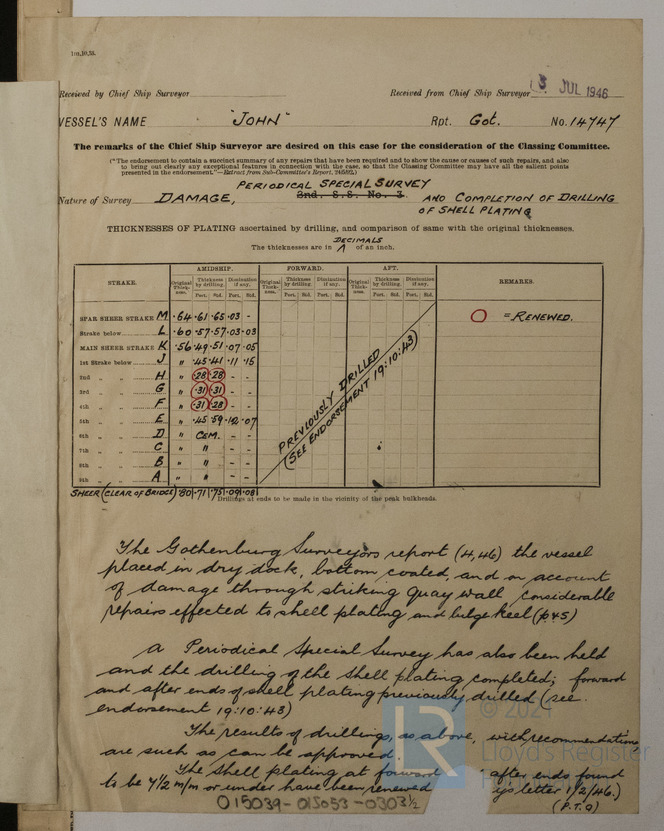 10m,10,35.
Received by Chief Ship Surveyor
Received from Chief Ship Surveyor 3 JUL 1946
VESSEL'S NAME "JOHN" Rpt. Got. No. 14747
The remarks of the Chief Ship Surveyor are desired on this case for the consideration of the Classing Committee.
("The endorsement to contain a succinct summary of any repairs that have been required and to show the cause or causes of such repairs, and also
to bring out clearly any exceptional features in connection with the case, so that the Classing Committee may have all the salient points
presented in the endorsement."—Extract from Sub-Committee's Report, 24/5/32.)
PERIODICAL SPECIAL SURVEY
Nature of Survey DAMAGE, 2nd. S.S. No. 3 AND COMPLETION OF DRILLING
OF SHELL PLATING
THICKNESSES OF PLATING ascertained by drilling, and comparison of same with the original thicknesses.
DECIMALS
The thicknesses are in of an inch.
STRAKE. AMIDSHIP. FORWARD. AFT. REMARKS.
Original Thickness. Thickness by drilling. Diminution if any. Original Thickness. Thickness by drilling. Diminution if any. Original Thickness. Thickness by drilling. Diminution if any.
Port. Stbd. Port. Stbd. Port. Stbd. Port. Stbd. Port. Stbd. Port. Stbd.
SPAR SHEER STRAKE M .64 .61 .65 .03 -
O = RENEWED.
Strake below L .60 .57 .57 .03 .03
MAIN SHEER STRAKE K .56 .49 .51 .07 .05
1st Strake below J " .45 .41 .11 .15
2nd " " H " .28 .28 - -
3rd " " G " .31 .31 - -
4th " " F " .31 .28 - -
5th " " E " .45 .59 .12 .07
6th " " D " CEM. - -
7th " " C " " - -
8th " " B " " - -
9th " " A " " - -
PREVIOUSLY DRILLED
(SEE ENDORSEMENT 19:10:43)
SHEER (CLEAR OF BRIDGE) .80 .71 .75 .09 .08
Drillings at ends to be made in the vicinity of the peak bulkheads.
The Gothenburg Surveyors report (4,46) the vessel
placed in dry dock, bottom coated, and on account
of damage through striking quay wall considerable
repairs effected to shell plating and bilge keel (p45)
A Periodical Special Survey has also been held
and the drilling of the shell plating completed; forward
and after ends of shell plating previously drilled (see
endorsement 19:10:43)
The results of drillings, as above, with recommendations
are such as can be approved.
The shell plating at forward after ends found
to be 7½ m/m or under have been renewed letter 1/2/46.)
(P.T.O)
015039-015053-0303½
© 2021
Lloyd's Register
LR